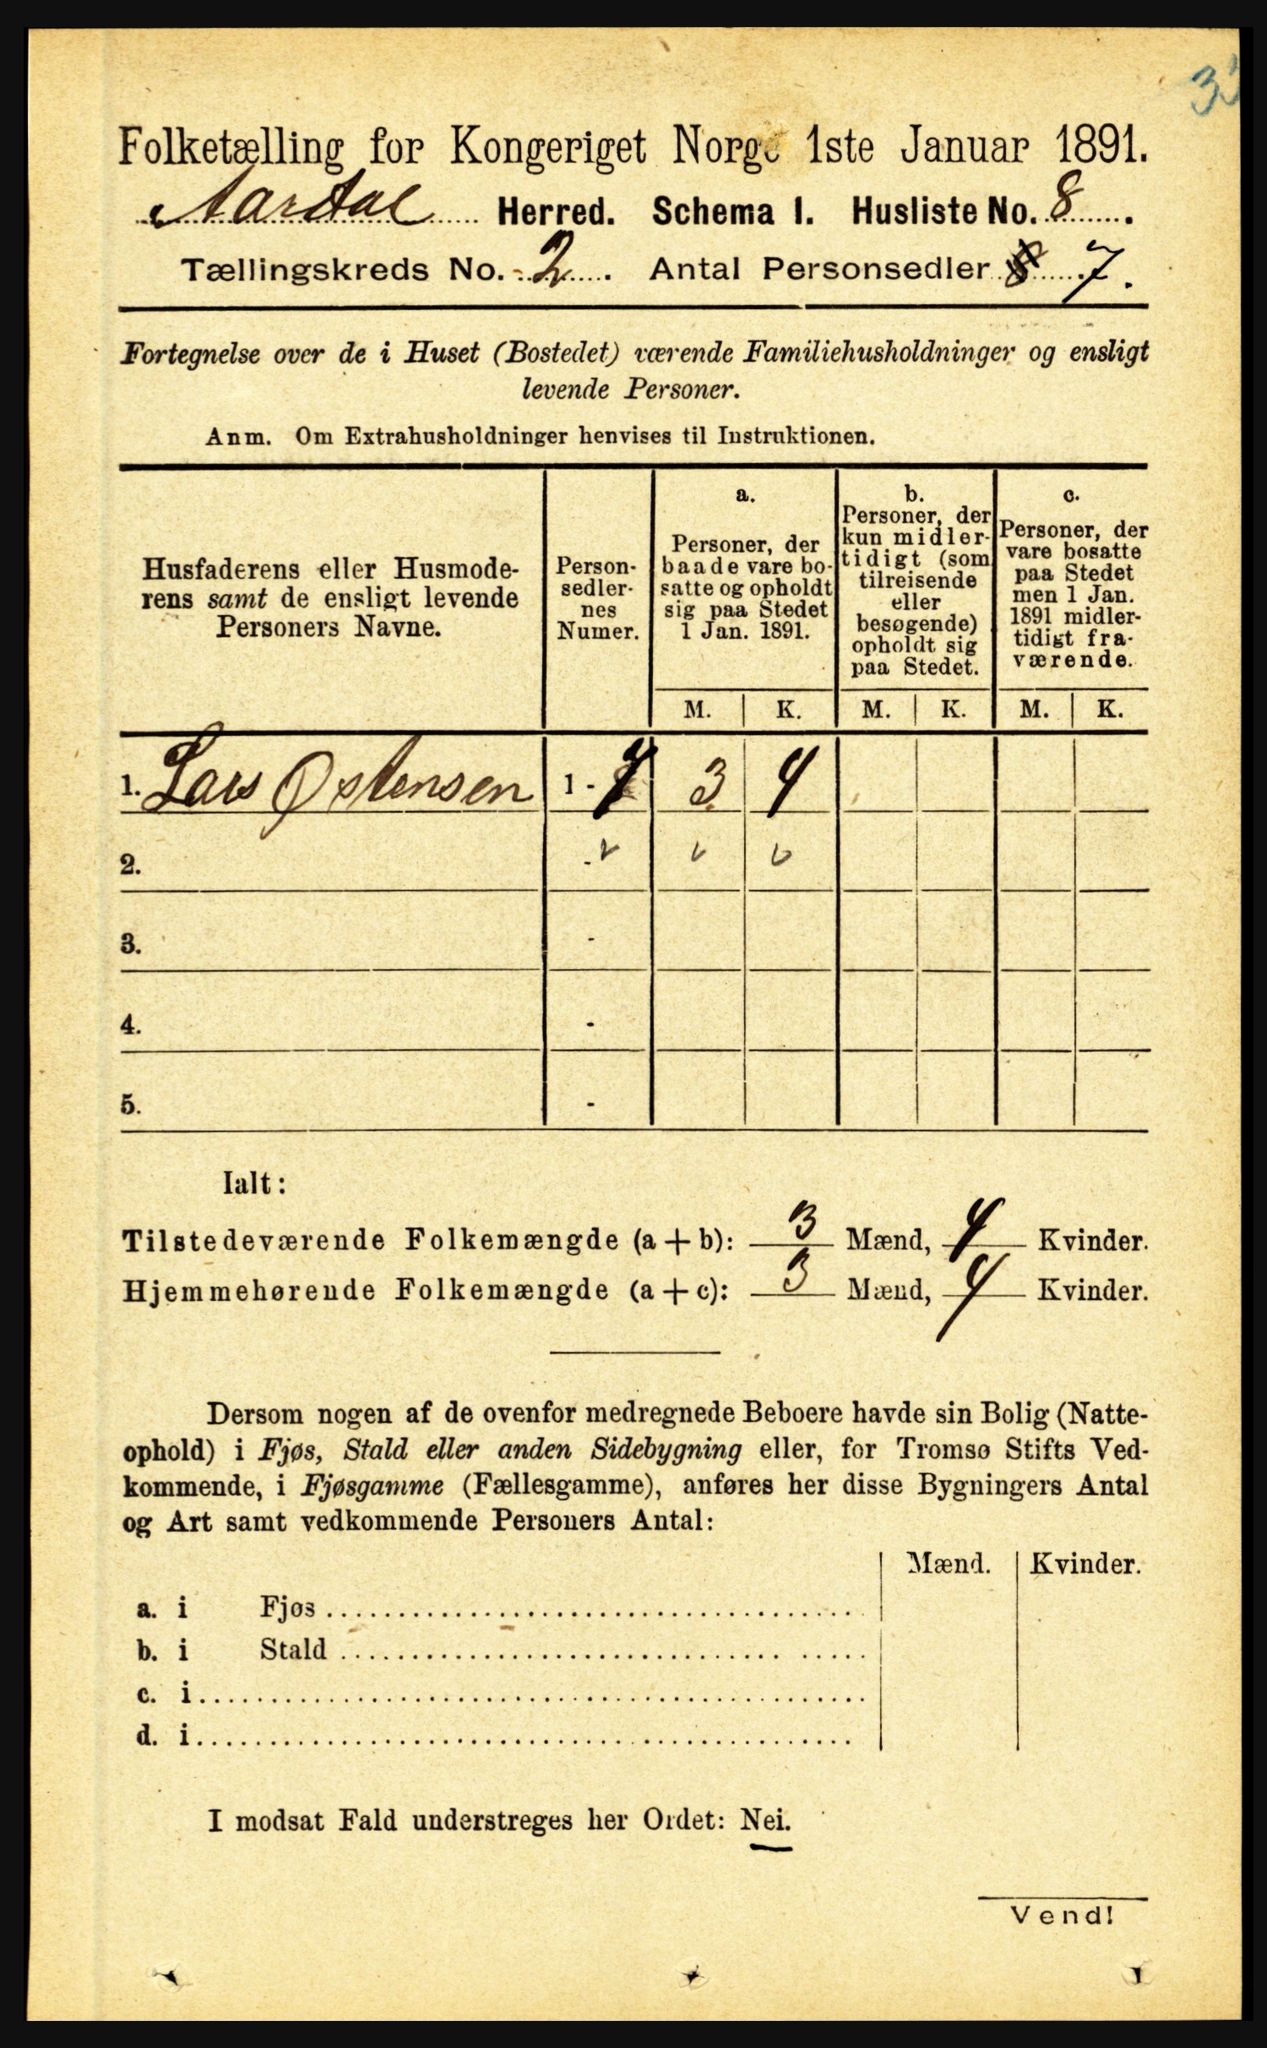 Folketælling for Kongeriget Norge 1ste Januar 1891.
Aardal Herred. Schema I. Husliste No. 8.
Tællingskreds No. 2. Antal Personsedler 8 7.
Fortegnelse over de i Huset (Bostedet) værende Familiehusholdninger og ensligt
levende Personer.
Anm. Om Extrahusholdninger henvises til Instruktionen.
Husfaderens eller Husmode-
rens samt de ensligt levende
Personers Navne.
Person-
sedler-
nes
Numer.
a.
Personer, der
baade vare bo-
satte og opholdt
sig paa Stedet
1 Jan. 1891.
b.
Personer, der
kun midler-
tidigt (som
tilreisende
eller
besøgende)
opholdt sig
paa Stedet.
c.
Personer, der
vare bosatte
paa Stedet
men 1 Jan.
1891 midler-
tidigt fra-
værende.
M. K. M. K. M. K.
1. Lars Østensen 1 - 7 3 4
2. -
3. -
4. -
5. -
Ialt:
Tilstedeværende Folkemængde (a + b): 3 Mænd, 4 Kvinder.
Hjemmehørende Folkemængde (a + c): 3 Mænd, 4 Kvinder.
Dersom nogen af de ovenfor medregnede Beboere havde sin Bolig (Natte-
ophold) i Fjøs, Stald eller anden Sidebygning eller, for Tromsø Stifts Ved-
kommende, i Fjøsgamme (Fællesgamme), anføres her disse Bygningers Antal
og Art samt vedkommende Personers Antal:
Mænd. Kvinder.
a. i Fjøs
b. i Stald
c. i
d. i
I modsat Fald understreges her Ordet: Nei.
Vend!